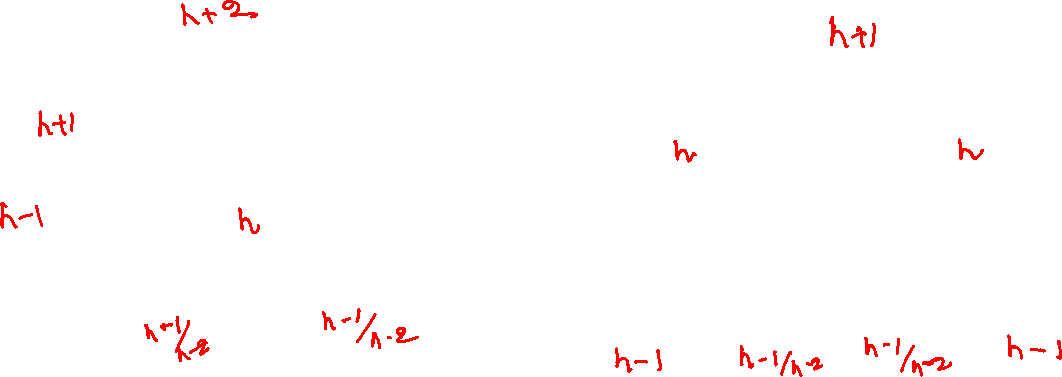 h+2
h+1
h+1
h
h
h-1
h
h-1/h-2
h-1/h-2
h-1
h-1/h-2
h-1/h-2
h-1